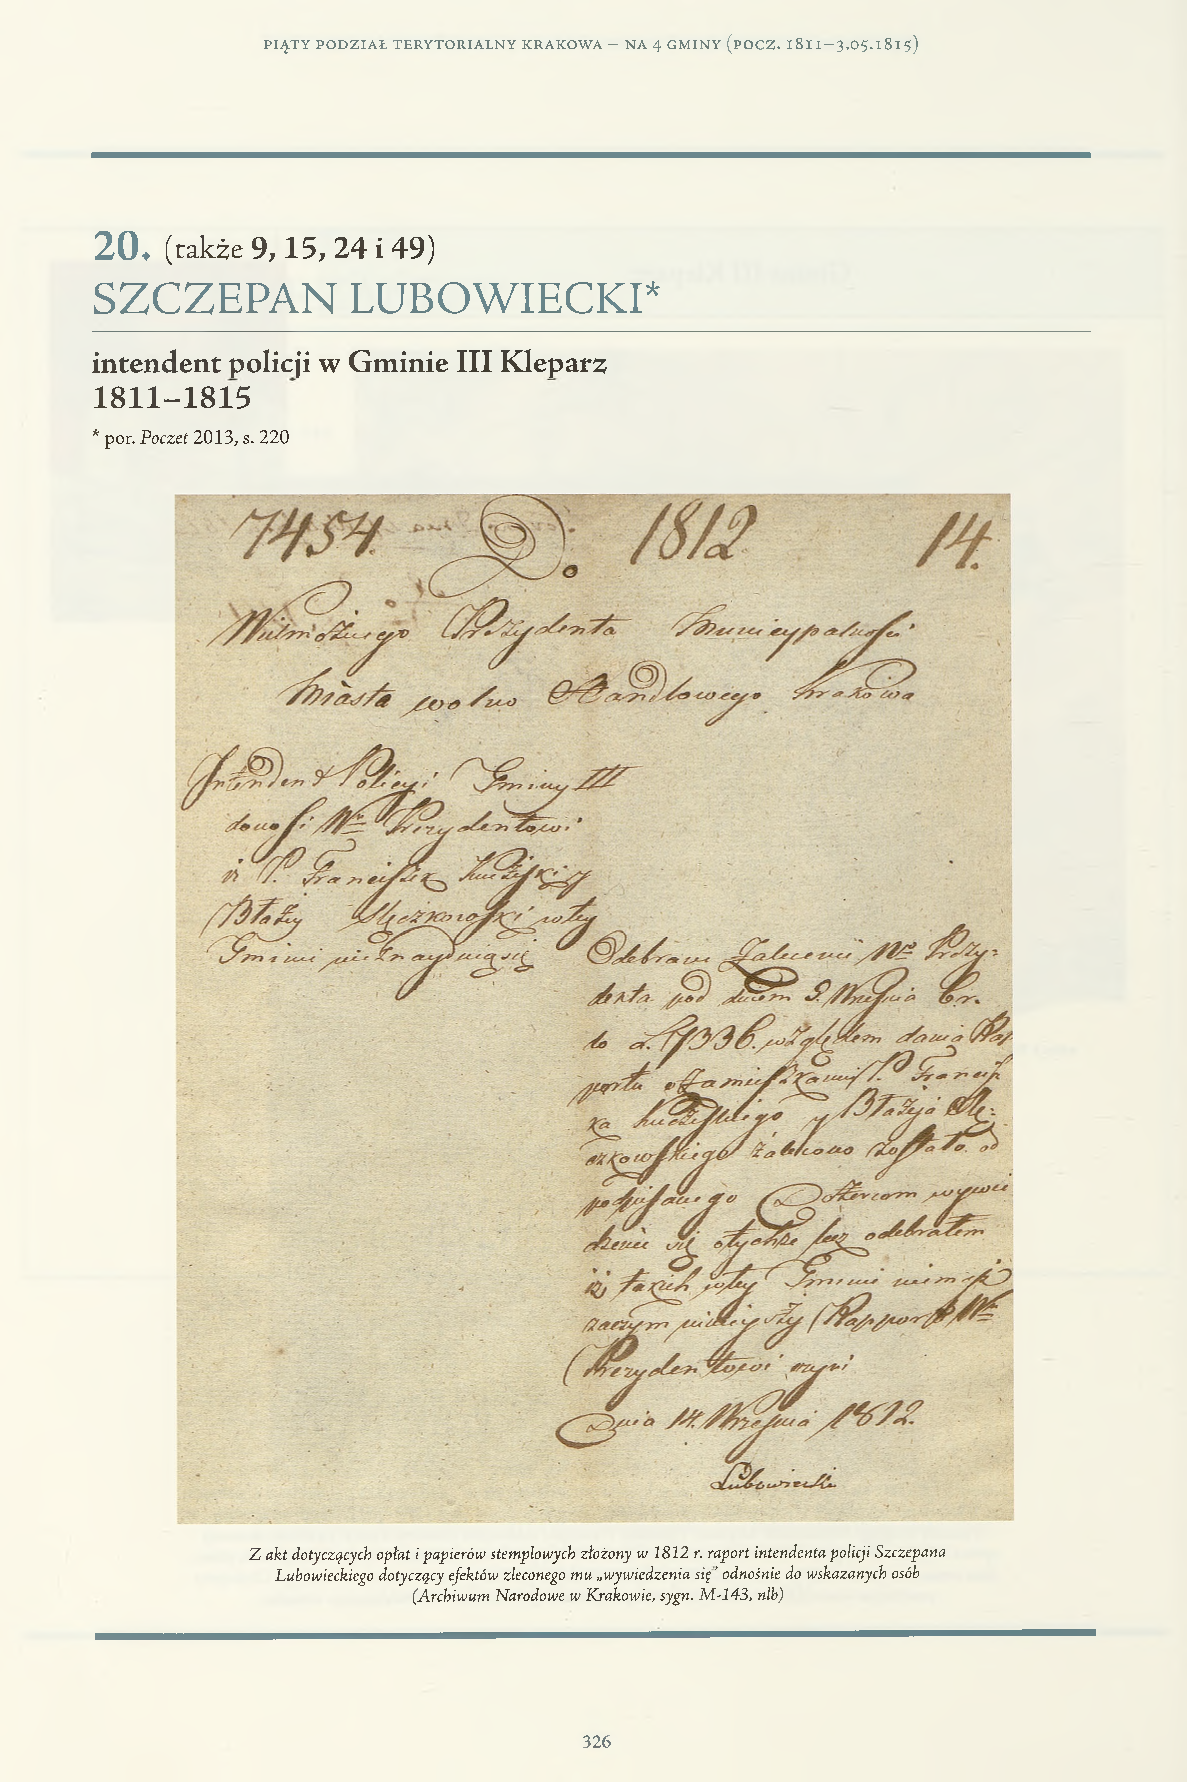 PIĄTY PODZIAŁ TERYTORIALNY KRAKOWA – NA 4 GMINY (POCZ. 1811–3.05.1815)
20. (także 9, 15, 24 i 49)
SZCZEPAN LUBOWIECKI*
intendent policji w Gminie III Kleparz
1811–1815
* por. Poczet 2013, s. 220
7454. D. 1812 14.
Wielmożnego Prezydenta Municypalności
Miasta wolno Handlowego Krakowa
Intendent Policyi Gminy III
donosi Wmu Prezydentowi
iż P. Franciszek y
Błażey wtey
Gminie nieznayduią się
Odebrane Zalecenie Wgo Prezy-
denta pod dniem 9. Września b.r.
do L. 7336. względem dania Rap
portu o Zamieszkaniu P. Francisz
ka y Błażeja
czkowskiego zalecono zostało od
podpisanego Dozorcom wywie
dzenie się otychże lecz odebrałem
iż takich wtey Gminie niemasz
zaczym ninieyszy Rapport Wmu
Prezydentowi czyni
Dnia 14. Września 1812.
Lubowiecki
Z akt dotyczących opłat i papierów stemplowych złożony w 1812 r. raport intendenta policji Szczepana
Lubowieckiego dotyczący efektów zleconego mu „wywiedzenia się” odnośnie do wskazanych osób
(Archiwum Narodowe w Krakowie, sygn. M-143, nlb)
326